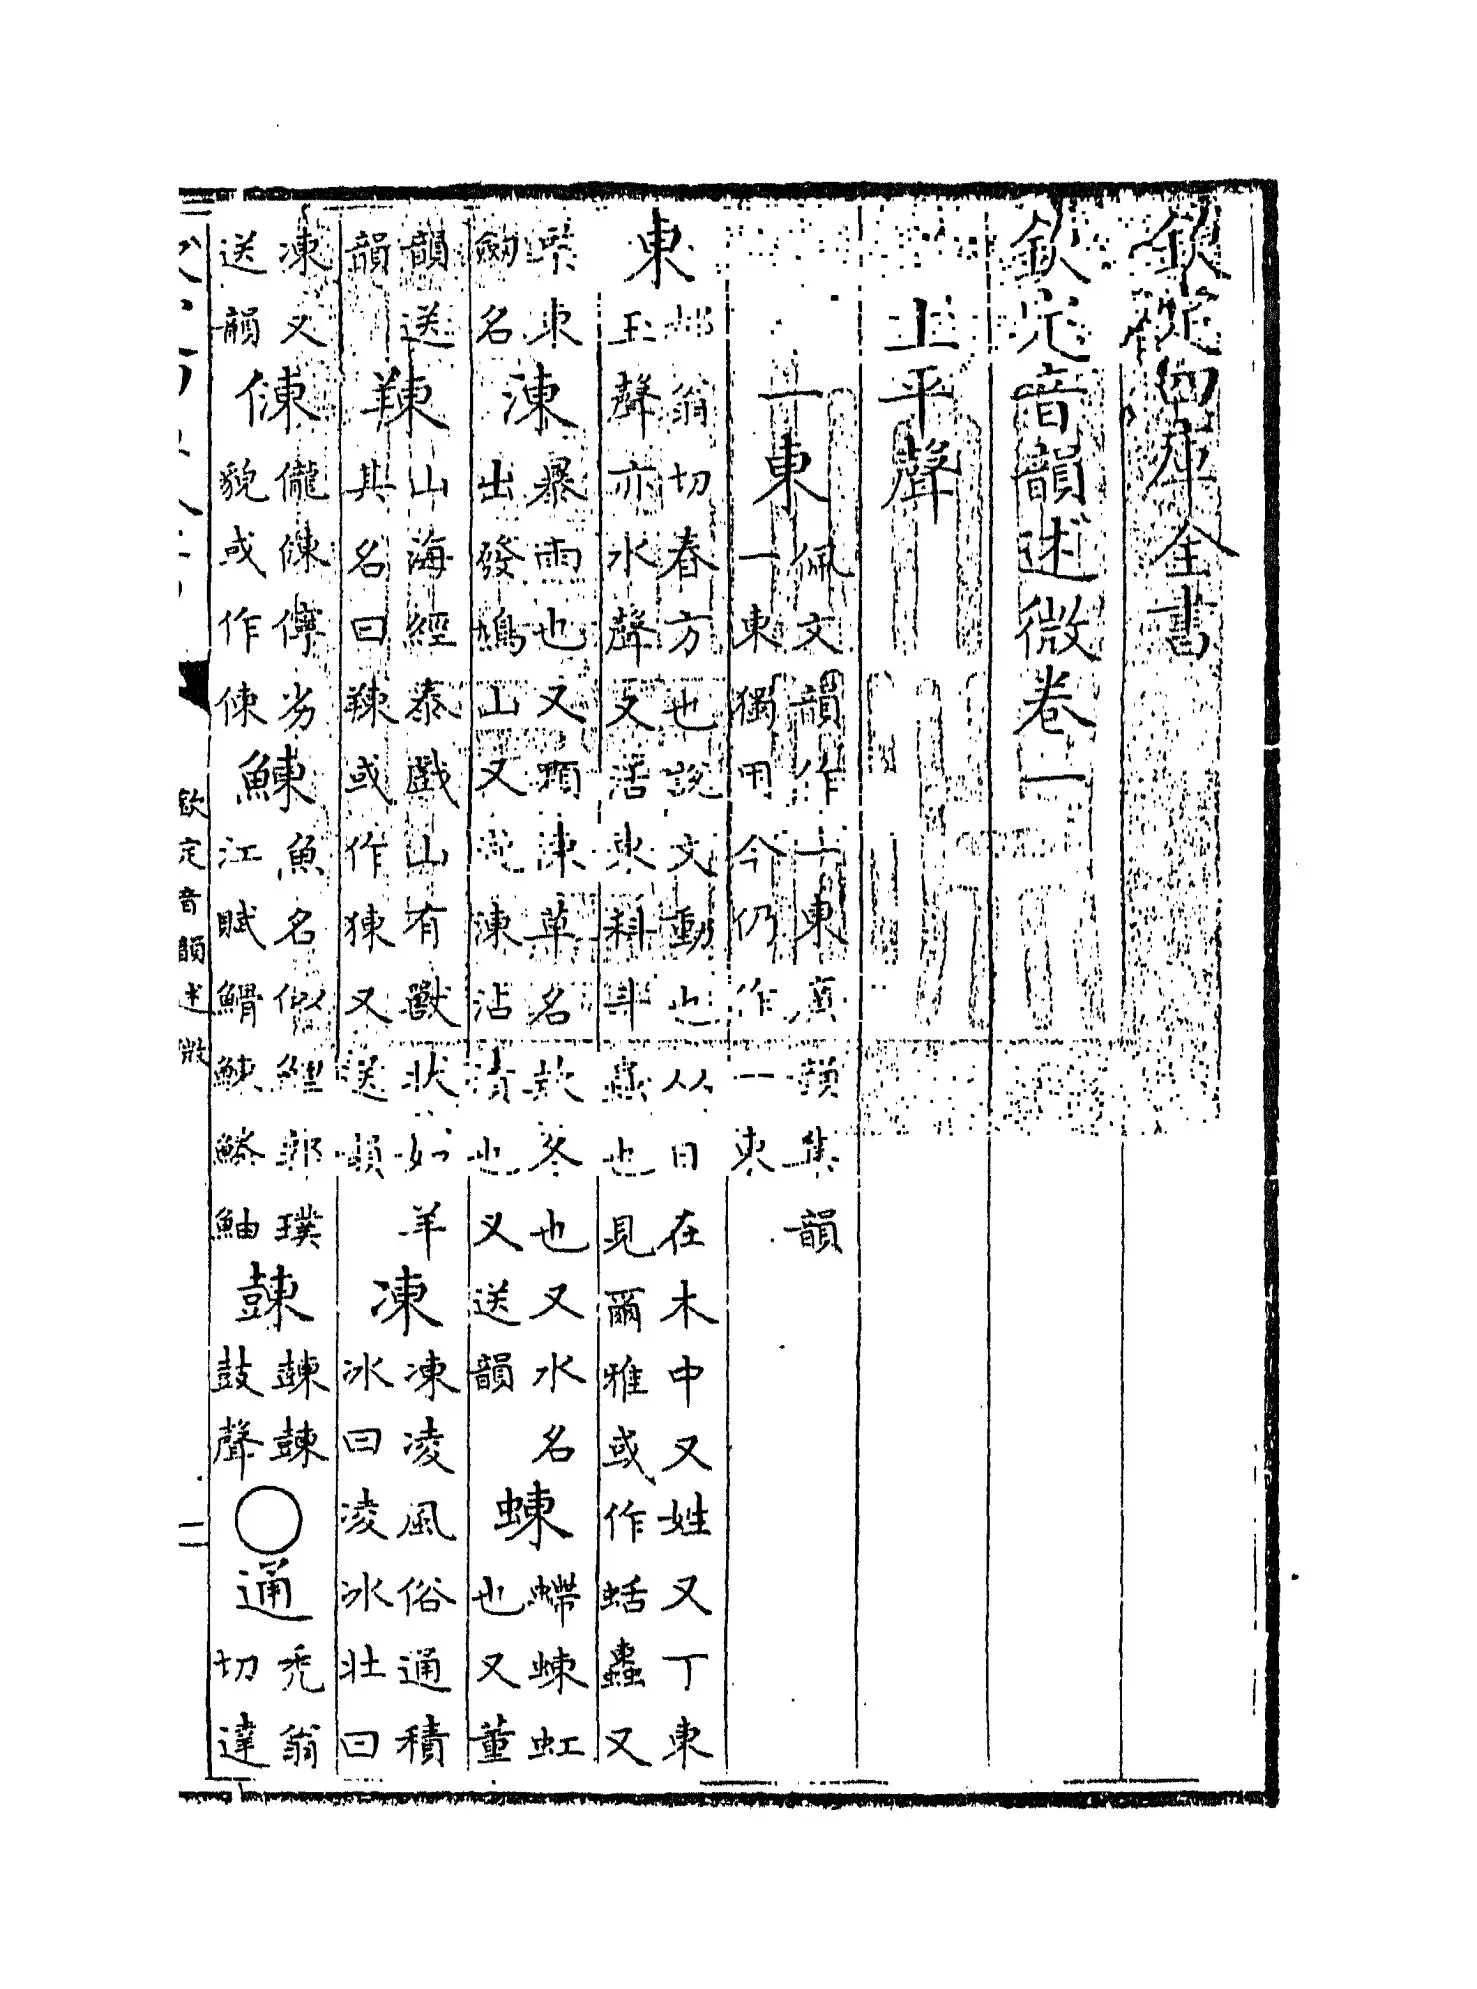 欽定四庫全書
欽定音韻述微卷一
上平聲
一東 佩文韻作一東廣韻集韻一東獨用今仍作一東
東 都翁切春方也說文動也从日在木中又姓又丁東玉聲亦水聲又活東科斗蟲也見爾雅或作蛞蠹又
東劔名 涷 暴雨也又顆涷草名款冬也又水名出發鳩山又瀧涷沾漬也又送韻 蝀 螮蝀虹也又董
韻送韻 䍶 山海經泰戲山有獸状如羊其名曰䍶或作㹍又送韻 凍 凍凌風俗通積冰曰凌冰壯曰
凍又送韻 倲 儱倲儜劣貌或作倲 鯟 魚名似鯉郭璞江賦䱻鯟鰧鮋 鼓聲 ○ 通 秃翁切達
欽定音韻述微
二